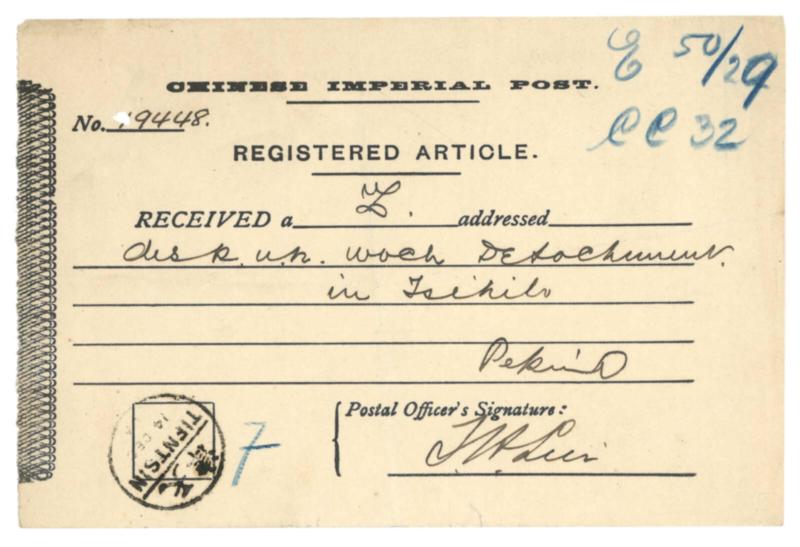 E 50/29
CHINESE IMPERIAL POST.
CC 32
No. 19448.
REGISTERED ARTICLE.
RECEIVED a L. addressed
des k. u. k. Wach Detachement
in Tschili
Peking
Postal Officer's Signature:
7
TIENTSIN